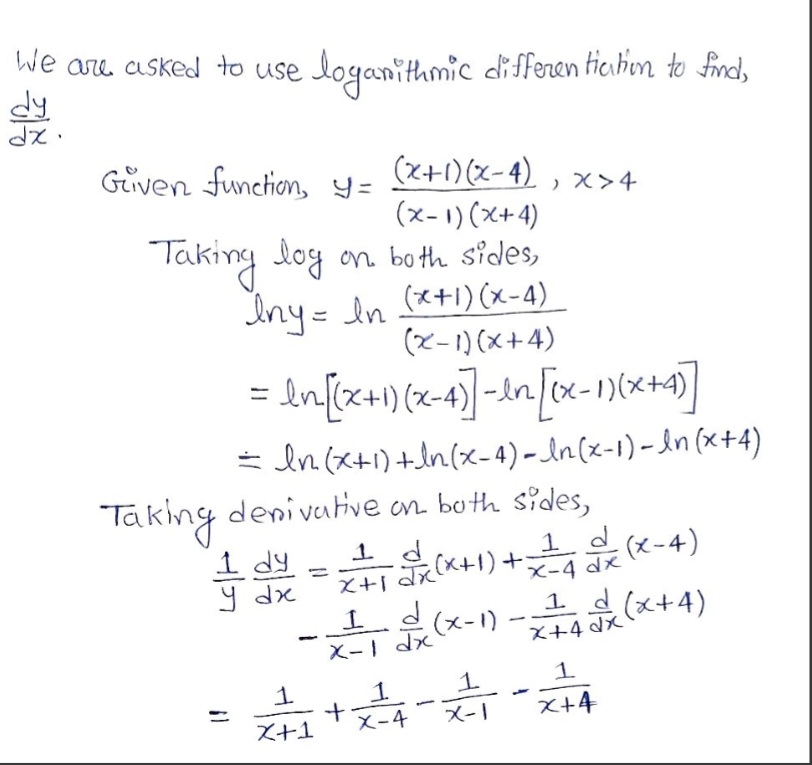 We are asked to use logarithmic differentiation to find,
dy/dx.
Given function, y = (x+1)(x-4)/(x-1)(x+4) , x>4
Taking log on both sides,
lny = ln (x+1)(x-4)/(x-1)(x+4)
= ln[(x+1)(x-4)] - ln[(x-1)(x+4)]
= ln(x+1) + ln(x-4) - ln(x-1) - ln(x+4)
Taking derivative on both sides,
1/y dy/dx = 1/x+1 d/dx (x+1) + 1/x-4 d/dx (x-4)
- 1/x-1 d/dx (x-1) - 1/x+4 d/dx (x+4)
= 1/x+1 + 1/x-4 - 1/x-1 - 1/x+4